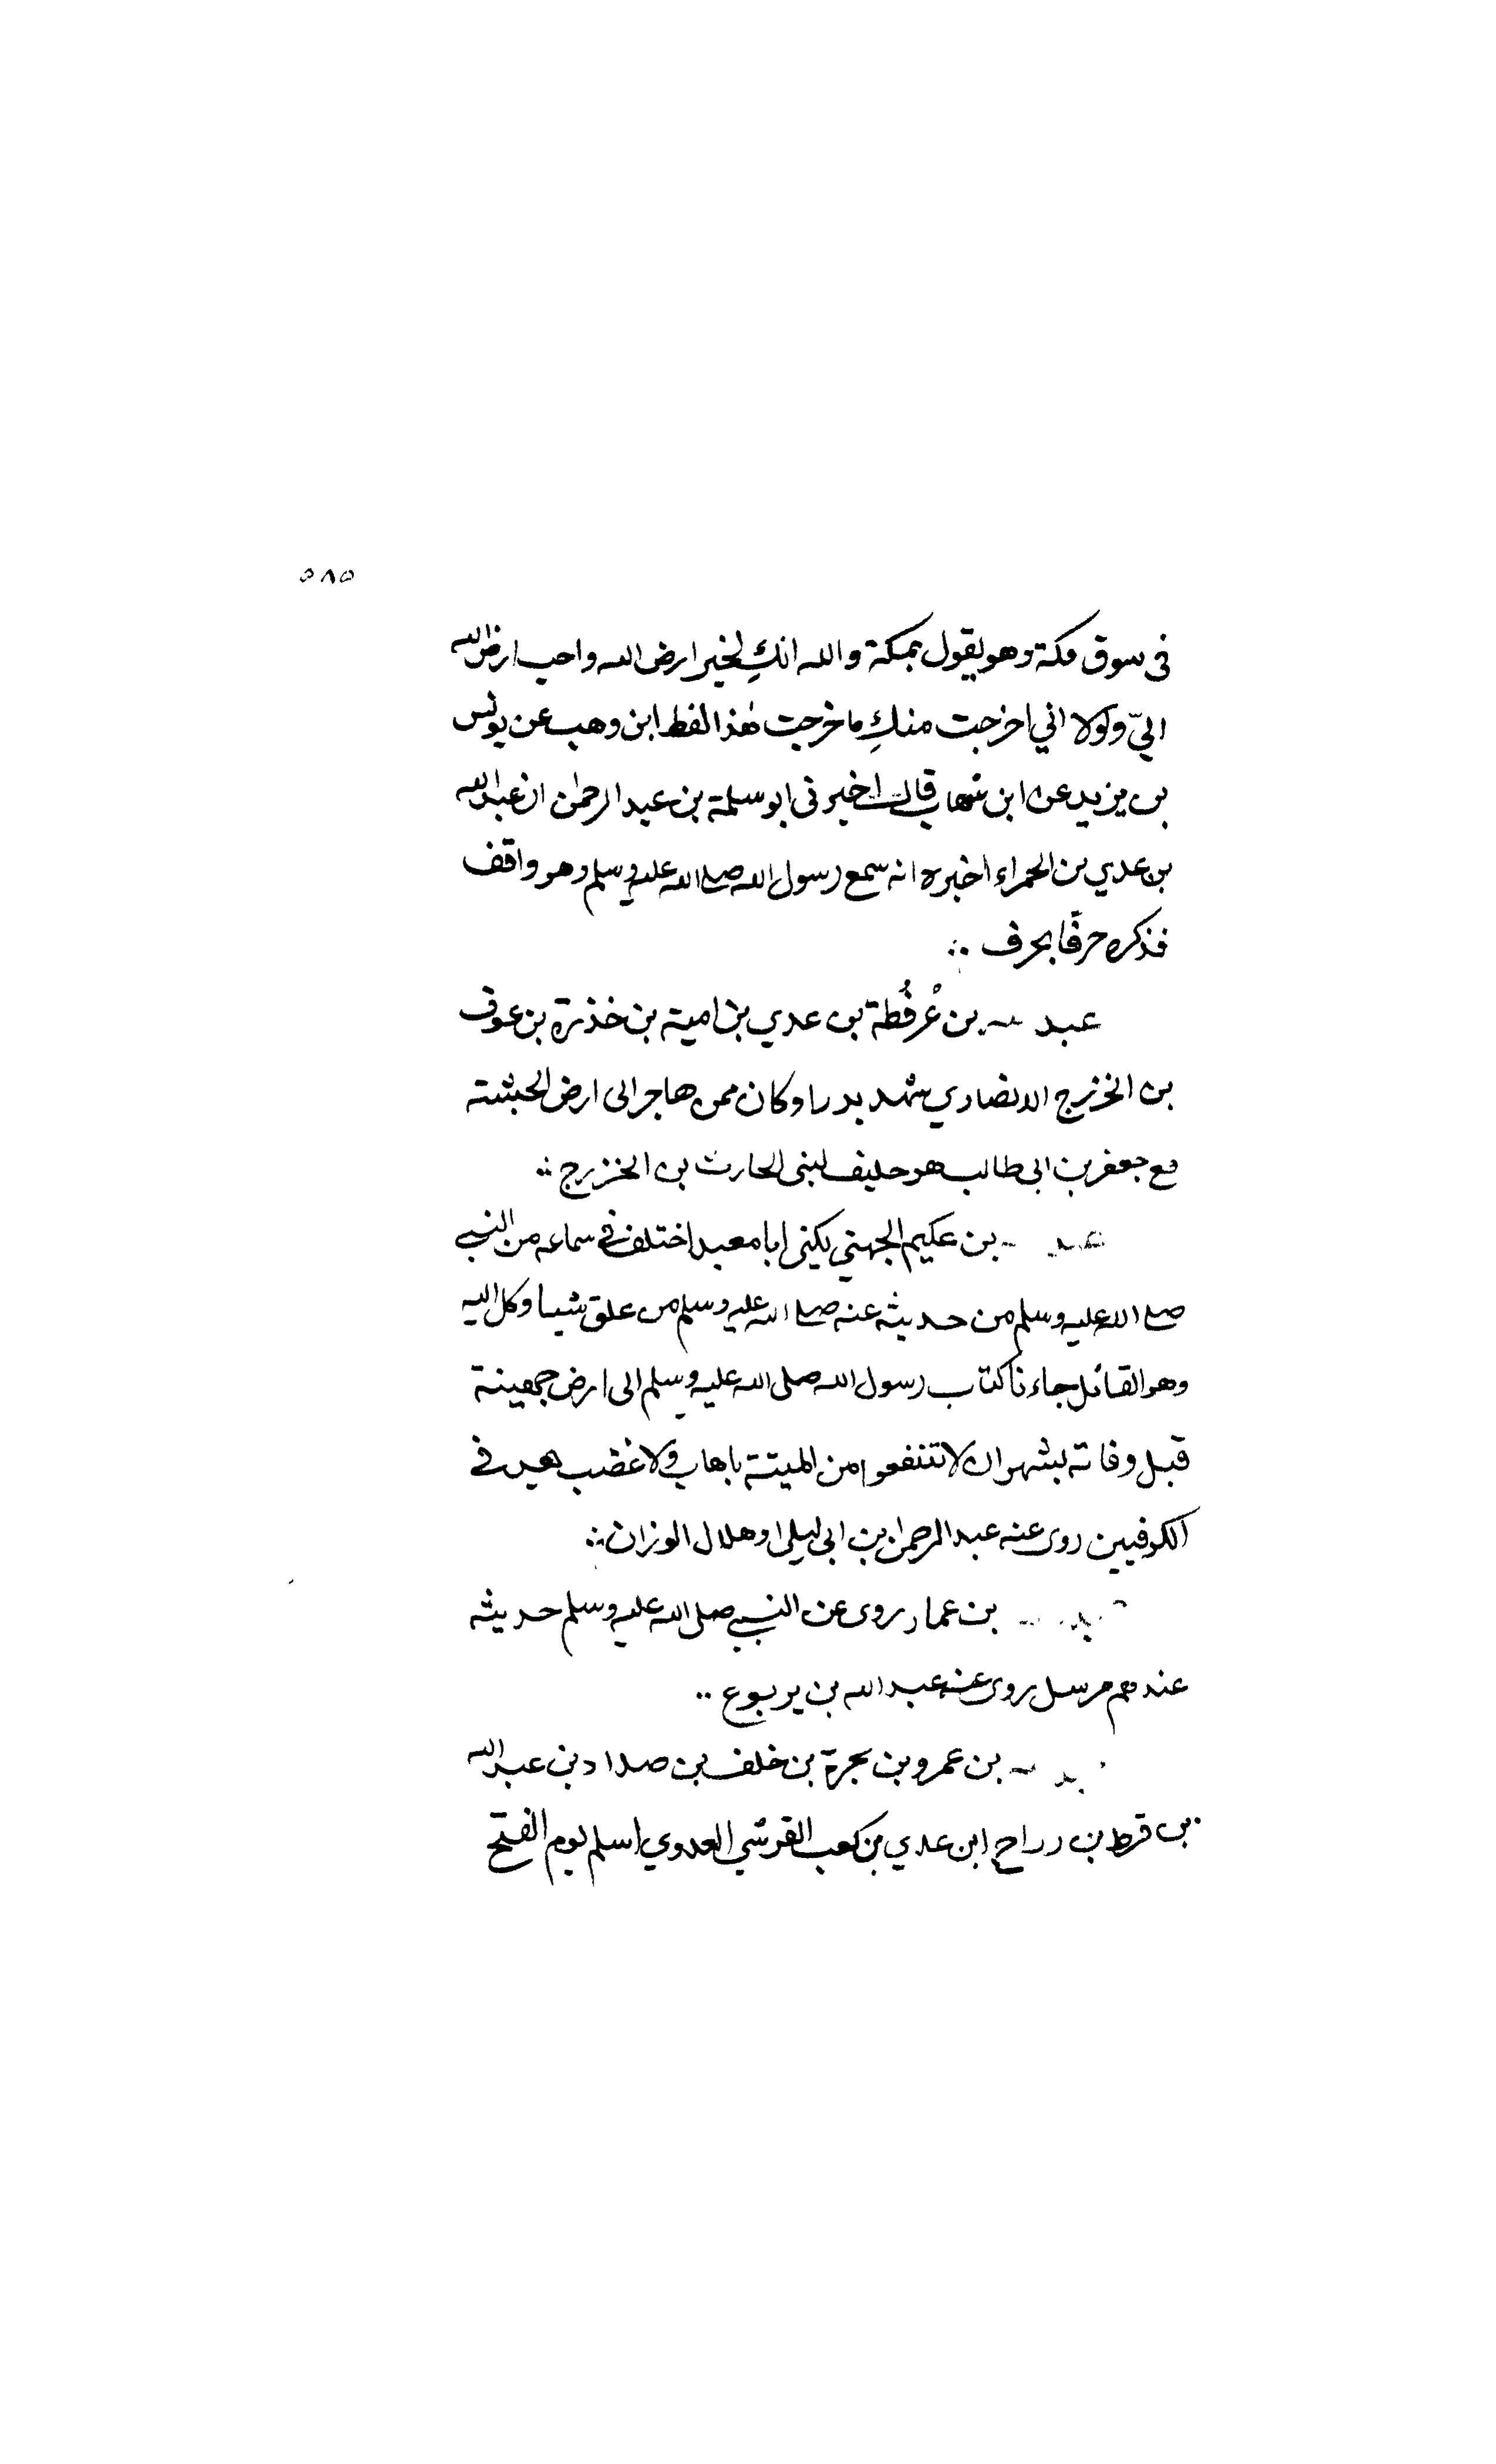 ٥٨٥
فى سوق مكة وهو يقول بمكة والله انكِ لخير ارض الله واحب ارض الله
اليّ ولولا اني اخرجت منكِ ما خرجت هٰذا لفظ ابن وهب عن يونس
بن يزيد عن ابن شهاب قال اخبرنى ابو سلمة بن عبد الرحمٰن ان عبد الله
بن عدي بن الحمراء اخبره انه سمع رسول الله صلى الله عليه وسلم وهو واقف
فذكره حرفًا بحرف ∴
عبد الله بن عُرفُطة بن عدي بن امية بن خذرة بن عوف
بن الخزرج الانصاري شهد بدرا وكان ممن هاجر الى ارض الحبشة
مع جعفر بن ابى طالب هو حليف لبنى الحارث بن الخزرج ∴
عبد الله بن عكيم الجهني يكنى ابا معبد اختلف فى سماعه من النبي
صلى الله عليه وسلم من حديثه عنه صلى الله عليه وسلم من علق شيا وكل اليه
وهو القائل جاءنا كتاب رسول الله صلى الله عليه وسلم الى ارض جهينة
قبل وفاته بشهر ان لا تنتفعوا من الميتة باهاب ولا غضب هو فى
الكوفيين روى عنه عبد الرحمن بن ابى ليلى وهلال الوزان ∴
بن عمار روى عن النبي صلى الله عليه وسلم حديثه
عندهم مرسل روى عنه عبد الله بن يربوع ..
بن عمرو بن بجرة بن خلف بن صداد بن عبد الله
بن قرط بن رراح ابن عدي بن كعب القرشي العدوي اسلم يوم الفتح